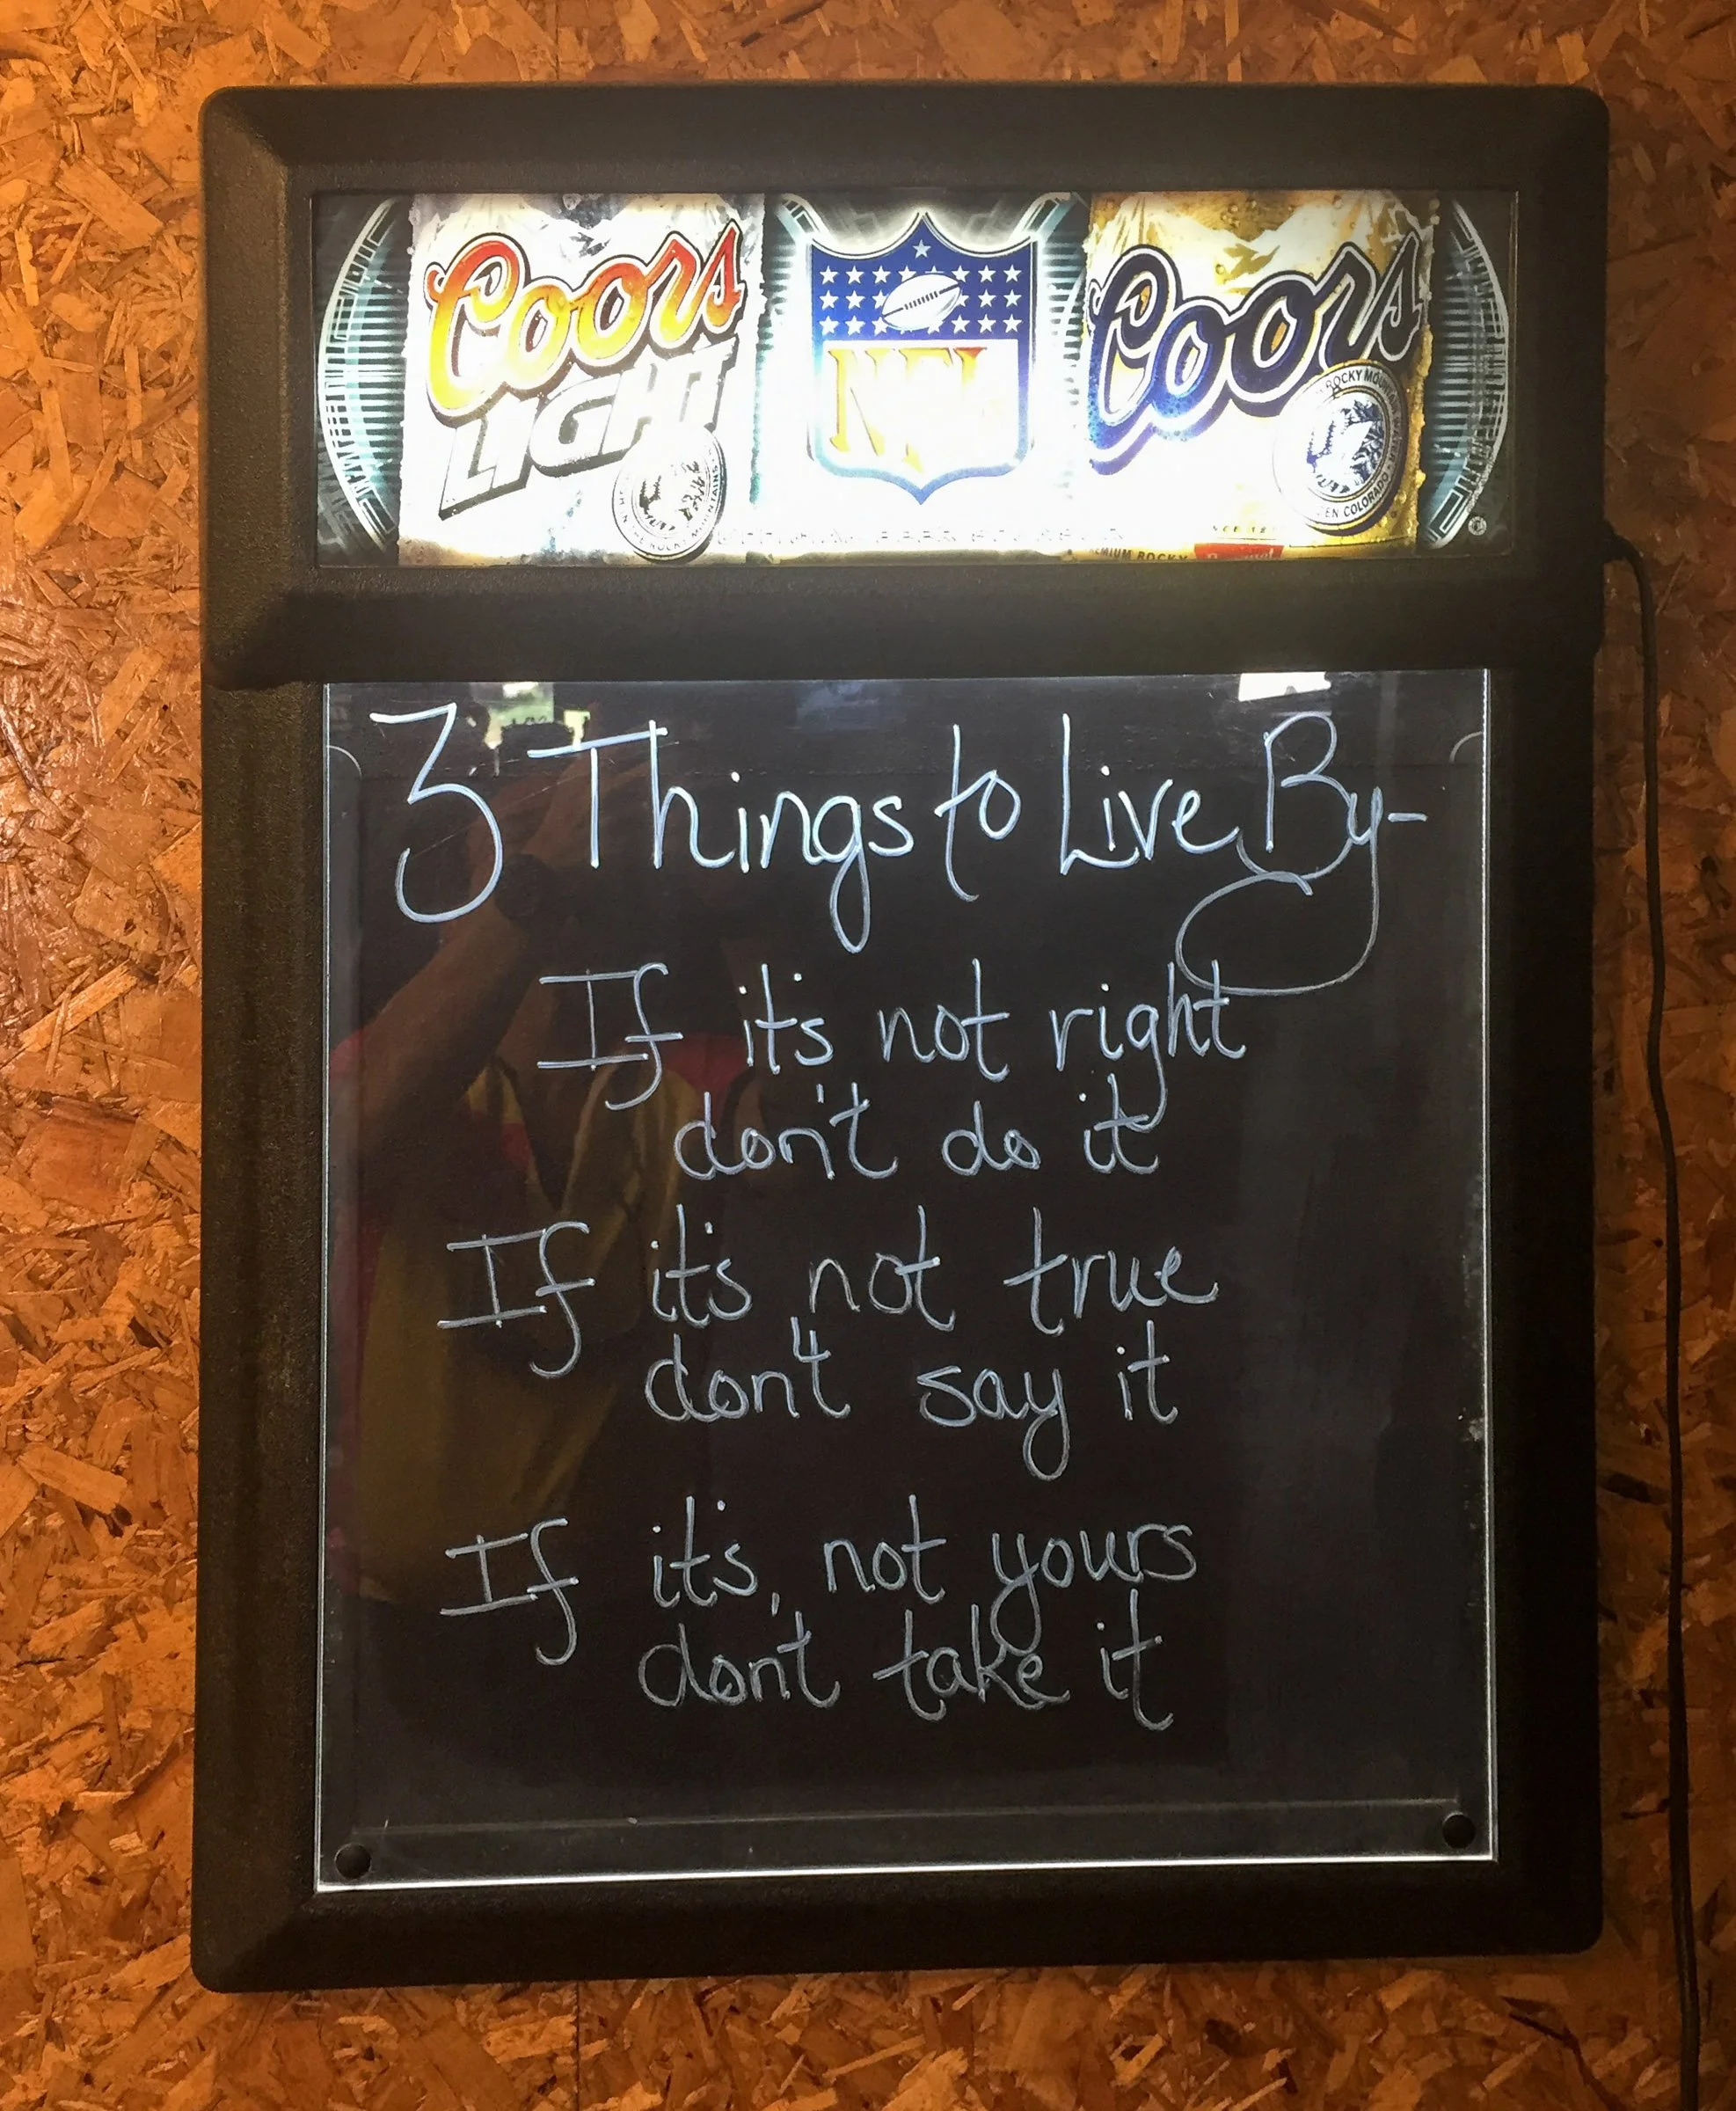 Coors
LIGHT
NFL
Coors
ROCKY
3 Things to Live By-
If it's not right
don't do it
If it's not true
don't say it
If it's, not yours
don't take it